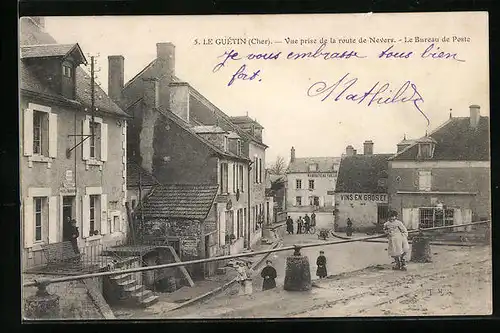 5. LE GUÉTIN (Cher). — Vue prise de la route de Nevers. — Le Bureau de Poste
Je vous embrasse tous bien
fort.
Mathilde
VINS EN GROS